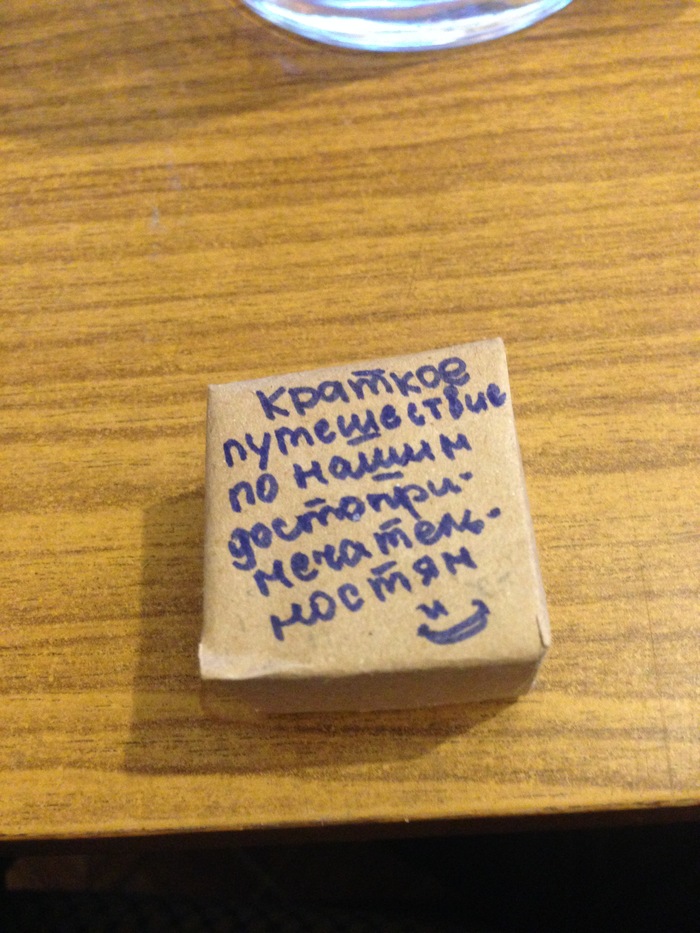 Краткое
путешествие
по нашим
достопри-
мечатель-
ностям